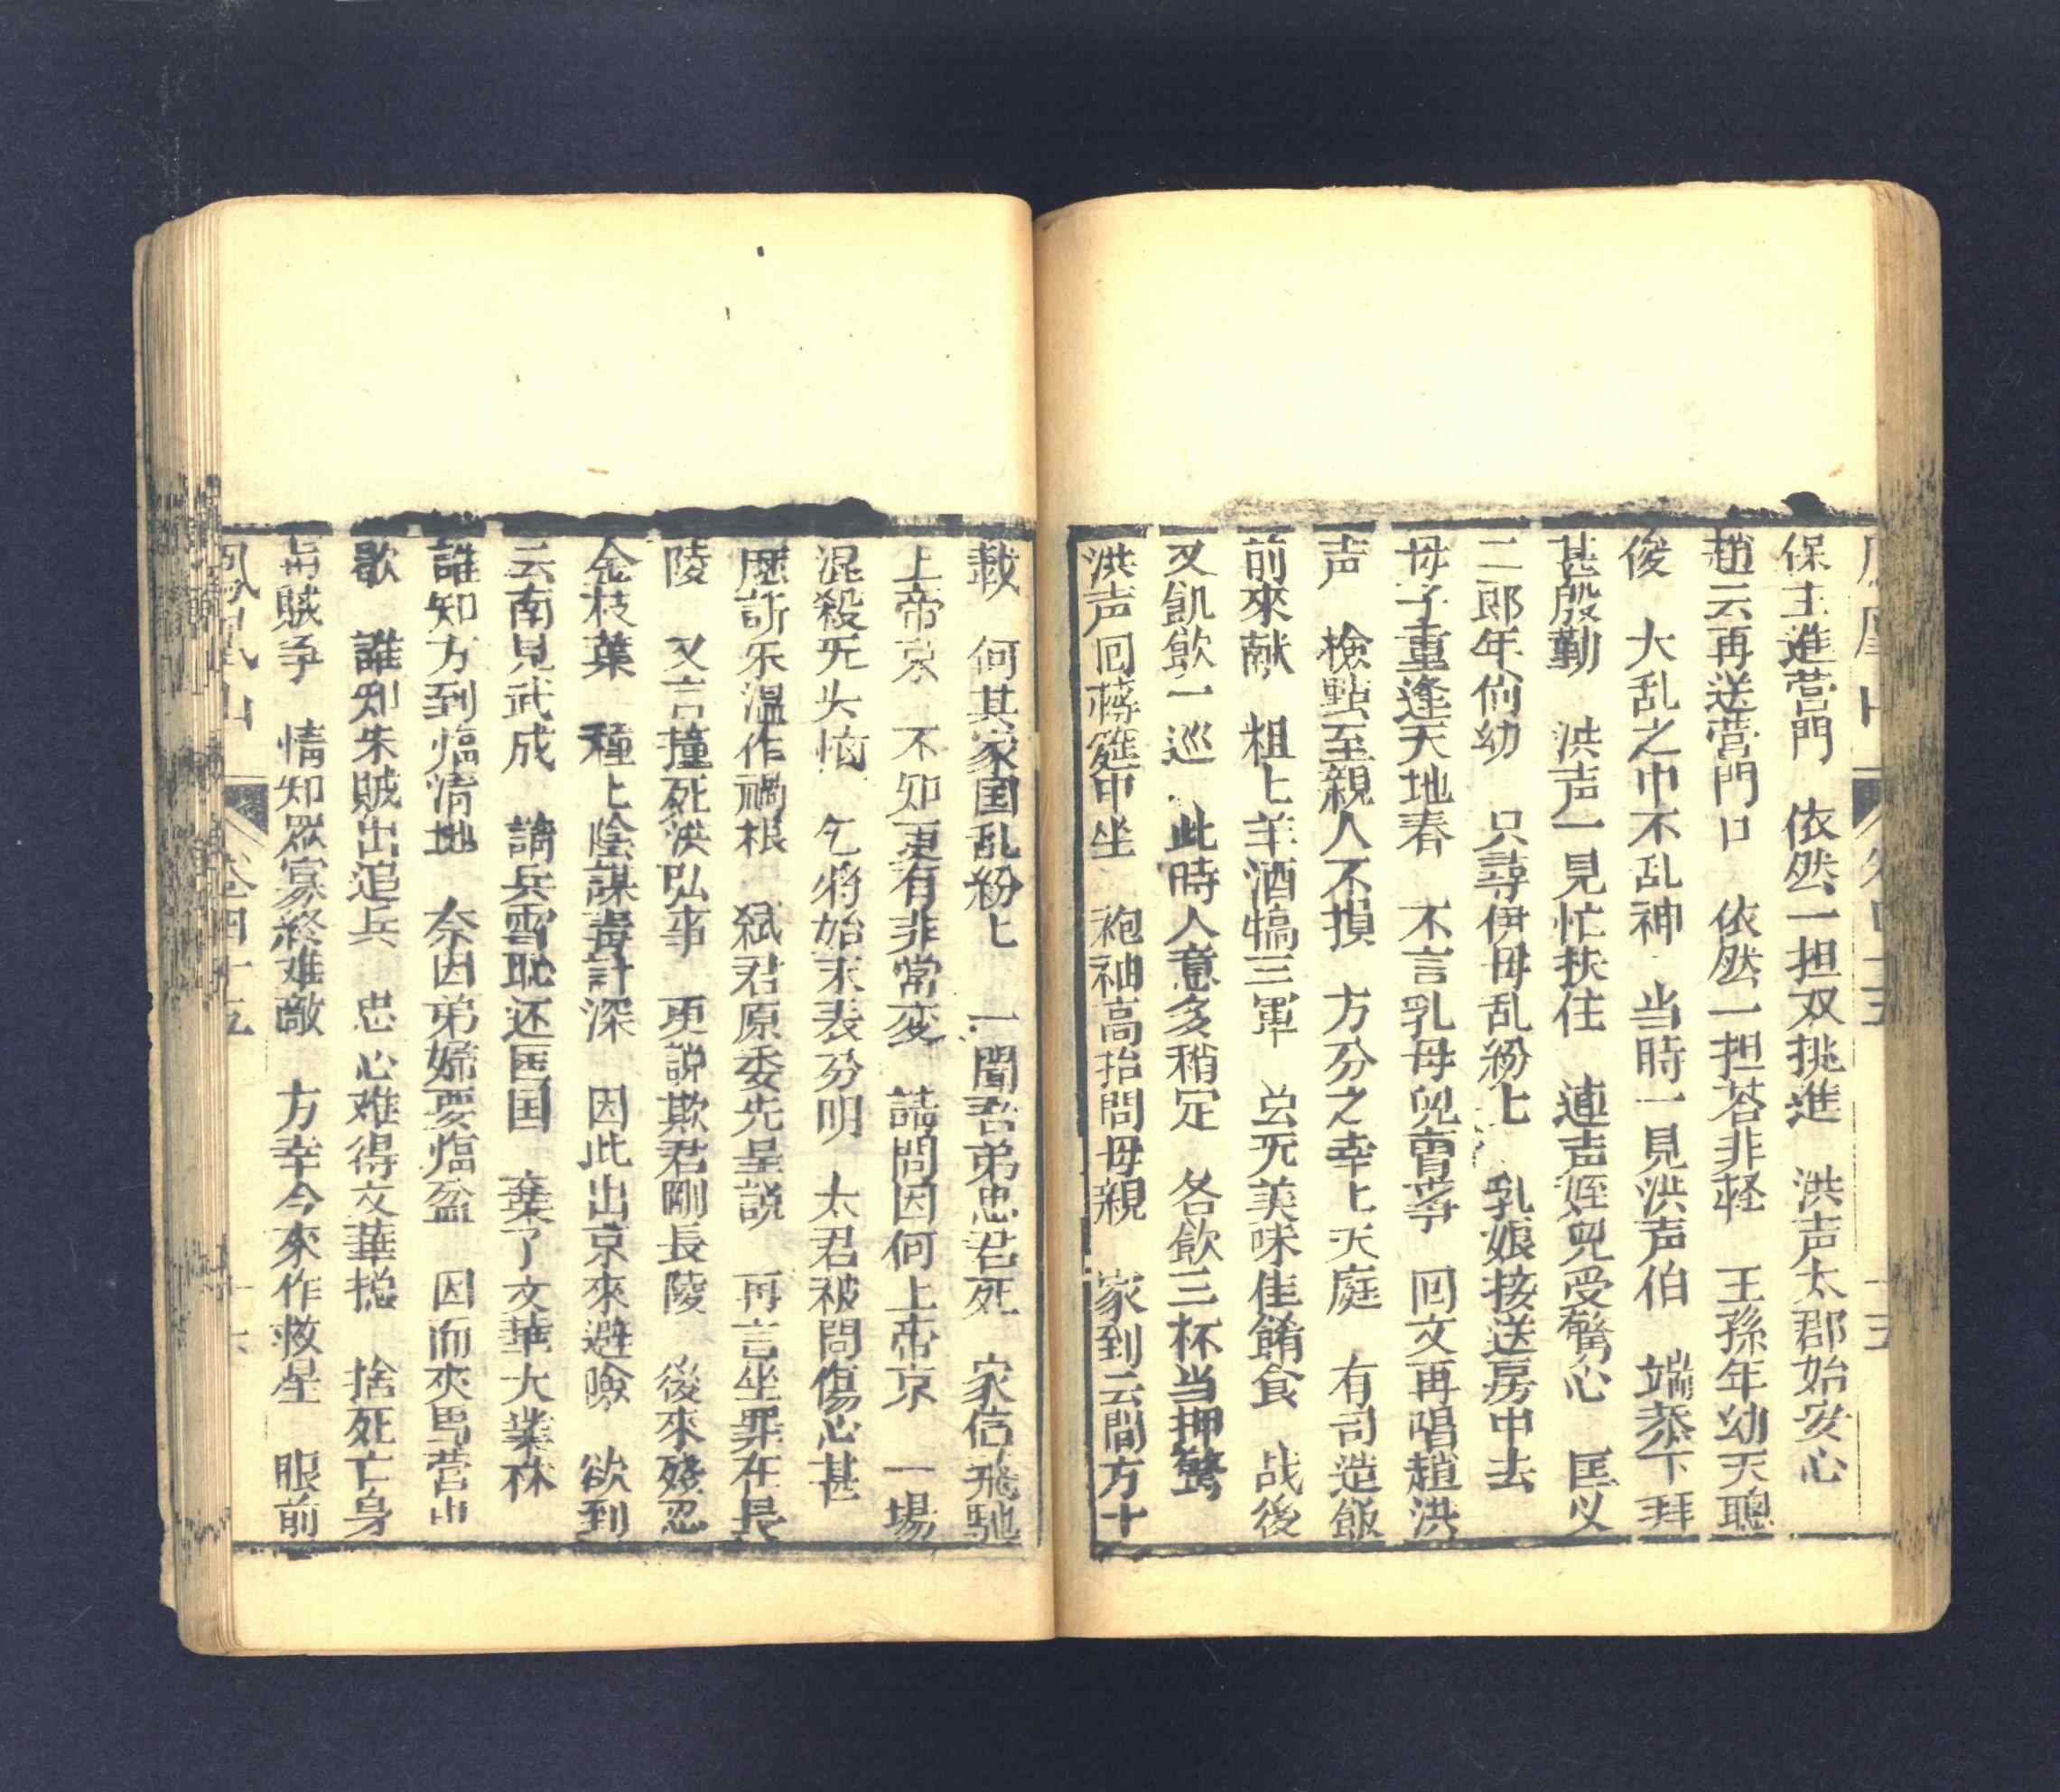 保主進营門　依然一担双挑進　洪声太郡始安心
趙云再送营門口　依然一担荅非軽　王孫年幼天聰
俊　大乱之中不乱神　当時一見洪声伯　端恭下拜
甚殷勤　洪声一見忙扶住　連声姪兒受驚心　匡义
二郎年尚幼　只尋伊母乱紛匕　乳娘接送房中去
母子重逢天地春　不言乳母兒曹莩　回文再唱趙洪
声　檢點至親人不損　方分之幸上天庭　有司造飯
前來献　粗匕羊酒犒三軍　岂无美味佳餚食　战後
又飢飲一巡　此時人意多稍定　各飲三杯当押驚
洪声回轉筵中坐　袍袖高抬問母親　家到云間方十
載　何其家国乱紛匕　一聞君弟忠君死　家信飛馳
上帝京　不知更有非常変　請問因何上帝京　一場
混殺无头恼　乞将始末表分明　太君被問傷心甚
歴訴乐溫作禍根　弑君原委先呈説　再言坐罪在長
陵　又言撞死洪弘事　更説欺君剛長陵　後來殘忍
金枝葉　種匕陰謀毒計深　因此出京來避險　欲到
云南見武成　請兵雪恥还匡国　棄了文華大業林
誰知方到臨清地　奈因弟婦要臨盆　因而夾馬营中
歇　誰知朱賊出追兵　忠心难得文華挩　捨死亡身
与賊争　情知眾寡終难敵　方幸今來作救星　眼前
鳳凰山　卷四十五